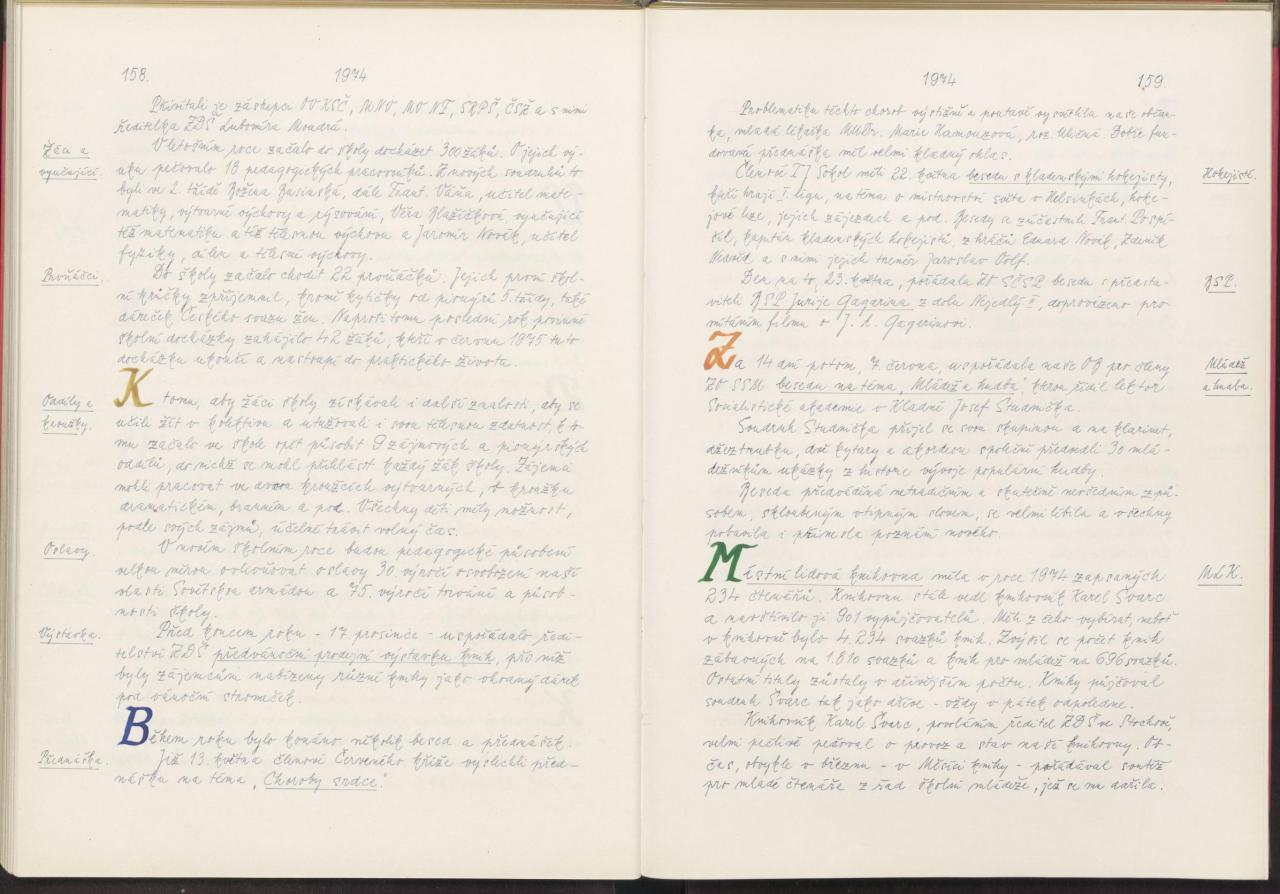 158. 1974
Přivítali je zástupci OV KSČ, MNV, MO NF, SRPŠ, ČSŽ a s nimi
ředitelka ZDŠ Lubomíra Moudrá.
Žáci a
vyučující.
V letošním roce začalo do školy docházet 300 žáků. O jejich vý-
uku pečovalo 18 pedagogických pracovníků. Z nových soudruhů to
byli ve 2. třídě Božena Businská, dále Frant. Váňa, učitel mate-
matiky, výtvarné výchovy a rýsování, Věra Blažíčková, vyučující
též matematiku a též tělesnou výchovu a Jaromír Novák, učitel
fyziky, dílen a tělesné výchovy.
Prvňáčci.
Do školy začalo chodit 22 prvňáčků. Jejich první škol-
ní krůčky zpříjemnil, kromě kytičky od pionýrů 5. třídy, také
dáreček Českého svazu žen. Naproti tomu poslední rok povinné
školní docházky zahájilo 42 žáků, kteří v červnu 1975 tuto
docházku ukončí a nastoupí do praktického života.
Oddíly a
kroužky.
K tomu, aby žáci školy získávali i další znalosti, aby se
učili žít v kolektivu a utužovali i svou tělesnou zdatnost, k to-
mu začalo ve škole opět působit 9 zájmových a pionýrských
oddílů, do nichž se mohl přihlásit každý žák školy. Zájemci
mohli pracovat ve dvou kroužcích výtvarných, v kroužku
dramatickém, branném a pod. Všechny děti měly možnost,
podle svých zájmů, účelně trávit volný čas.
Oslavy.
V novém školním roce budou pedagogické působení
velkou měrou ovlivňovat oslavy 30. výročí osvobození naší
vlasti Sovětskou armádou a 75. výročí trvání a působ-
nosti školy.
Výstavka.
Před koncem roku - 17. prosince - uspořádalo ředi-
telství ZDŠ předvánoční prodejní výstavku knih, při níž
byly zájemcům nabízeny různé knihy jako vhodný dárek
pod vánoční stromeček.
Během roku bylo konáno několik besed a přednášek.
Přednáška.
Již 13. května členové Červeného kříže vyslechli před-
nášku na téma „Choroby srdce".
1974 159.
Problematiku těchto chorob výstižně a poutavě vysvětlila naše občan-
ka, mladá lékařka MUDr. Marie Hamouzová, roz. Uličná. Dobře fun-
dovaná přednáška měla velmi kladný ohlas.
Hokejisté.
Členové TJ Sokol měli 22. května besedu s kladenskými hokejisty,
kteří hrají I. ligu, na téma o mistrovství světa v Helsinkách, hoke-
jové lize, jejich zájezdech a pod. Besedy se zúčastnili Frant. Pospí-
šil, kapitán kladenských hokejistů, z hráčů Eduard Novák, Zdeněk
Nedvěd a s nimi jejich trenér Jaroslav Volf.
BSP.
Den na to, 23. května, pořádala ZO SČSP besedu s předsta-
viteli BSP Jurije Gagarina z dolu Nejedlý II, doprovázenou pro-
mítáním filmu o J. A. Gagarinovi.
Mládež
a hudba.
Za 14 dní potom, 7. června, uspořádala naše OB pro členy
ZO SSM besedu na téma „Mládež a hudba", kterou řídil lektor
Socialistické akademie v Kladně Josef Studnička.
Soudruh Studnička přijel se svou skupinou a na klarinet,
džeztrubku, dvě kytary a akordeon společně předvedli 30 mlá-
dežníkům ukázky z historie vývoje populární hudby.
Beseda předváděná netradičním a skutečně nevšedním způ-
sobem, skloubeným vtipným slovem, se velmi líbila a všechny
pobavila i přinesla poznání nového.
MLK.
Místní lidová knihovna měla v roce 1974 zapsaných
234 čtenářů. Knihovnu stále vedl knihovník Karel Švarc
a navštívilo ji 901 vypůjčovatelů. Měli z čeho vybírat, neboť
v knihovně bylo 4.234 svazků knih. Zvýšil se počet knih
zábavných na 1.810 svazků a knih pro mládež na 696 svazků.
Ostatní tituly zůstaly v dřívějším počtu. Knihy půjčoval
soudruh Švarc tak jako dříve - vždy v pátek odpoledne.
Knihovník Karel Švarc, povoláním ředitel ZDŠ ve Stochově,
velmi pečlivě pečoval o provoz a stav naší knihovny. Ob-
čas, obvykle v březnu - v Měsíci knihy - pořádával soutěž
pro mladé čtenáře z řad školní mládeže, jež se mu dařila.